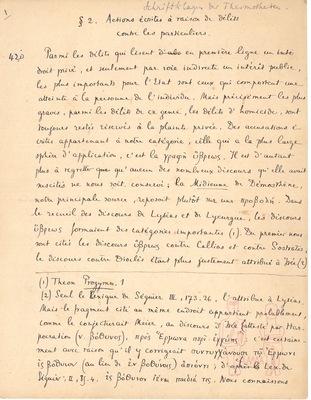 Schriftklagen der Thesmotheten.
§ 2. Actions écrites à raison de délits
contre les particuliers.
420 Parmi les délits qui lèsent en première ligne un inté-
rêt privé, et seulement par voie indirecte un intérêt public,
les plus importants pour l'État sont ceux qui comportent une
atteinte à la personne de l'individu. Mais précisément les plus
graves, parmi les délits de ce genre, les délits d'homicide, sont
toujours restés réservés à la plainte privée. Des accusations é-
crites appartenant à notre catégorie, celle qui a la plus large
sphère d'application, c'est la γραφὴ ὕβρεως. Il est d'autant
plus à regretter que qu'aucun des nombreux discours qu'elle avait
suscités ne nous soit conservé; la Midienne de Démosthène,
notre principale source, reposait plutôt sur une προβολή. Dans
le recueil des discours de Lysias et de Lycurgue, les discours
ὕβρεως formaient des catégories importantes (1). Du premier nous
sont cités les discours ὕβρεως contre Callias et contre Sostratès;
le discours contre Dioclès étant plus justement attribué à Isée (2)
(1) Theon Progymn. 1
(2) Seul le Lexique de Séguier III, 173. 26, l'attribue à Lysias.
Mais le fragment cité au même endroit appartient probablement,
comme le conjecturait Meier, au discours d'Isée attesté par Har-
pocration (v. βόθυνος), πρὸς Ἕρμωνα περὶ ἐγγύης; c'est certaine-
ment avec raison qu'il y corrigeait συντυγχάνουσι τῷ Ἕρμωνι
ἐς βόθυνον (au lieu de ἐν βόθυνος) ἀπιόντι; d'après le Lex. de
Séguier, II, 85. 4. ἐς βόθυνον Nous connaissons